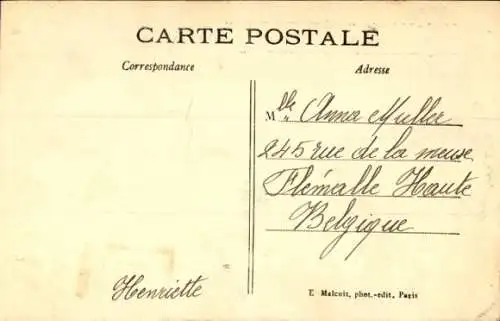 CARTE POSTALE
Correspondance
Adresse
Mlle Anna Muller
245 rue de la meuse
Flémalle Haute
Belgique
Henriette
E. Malcuit, phot.-edit, Paris